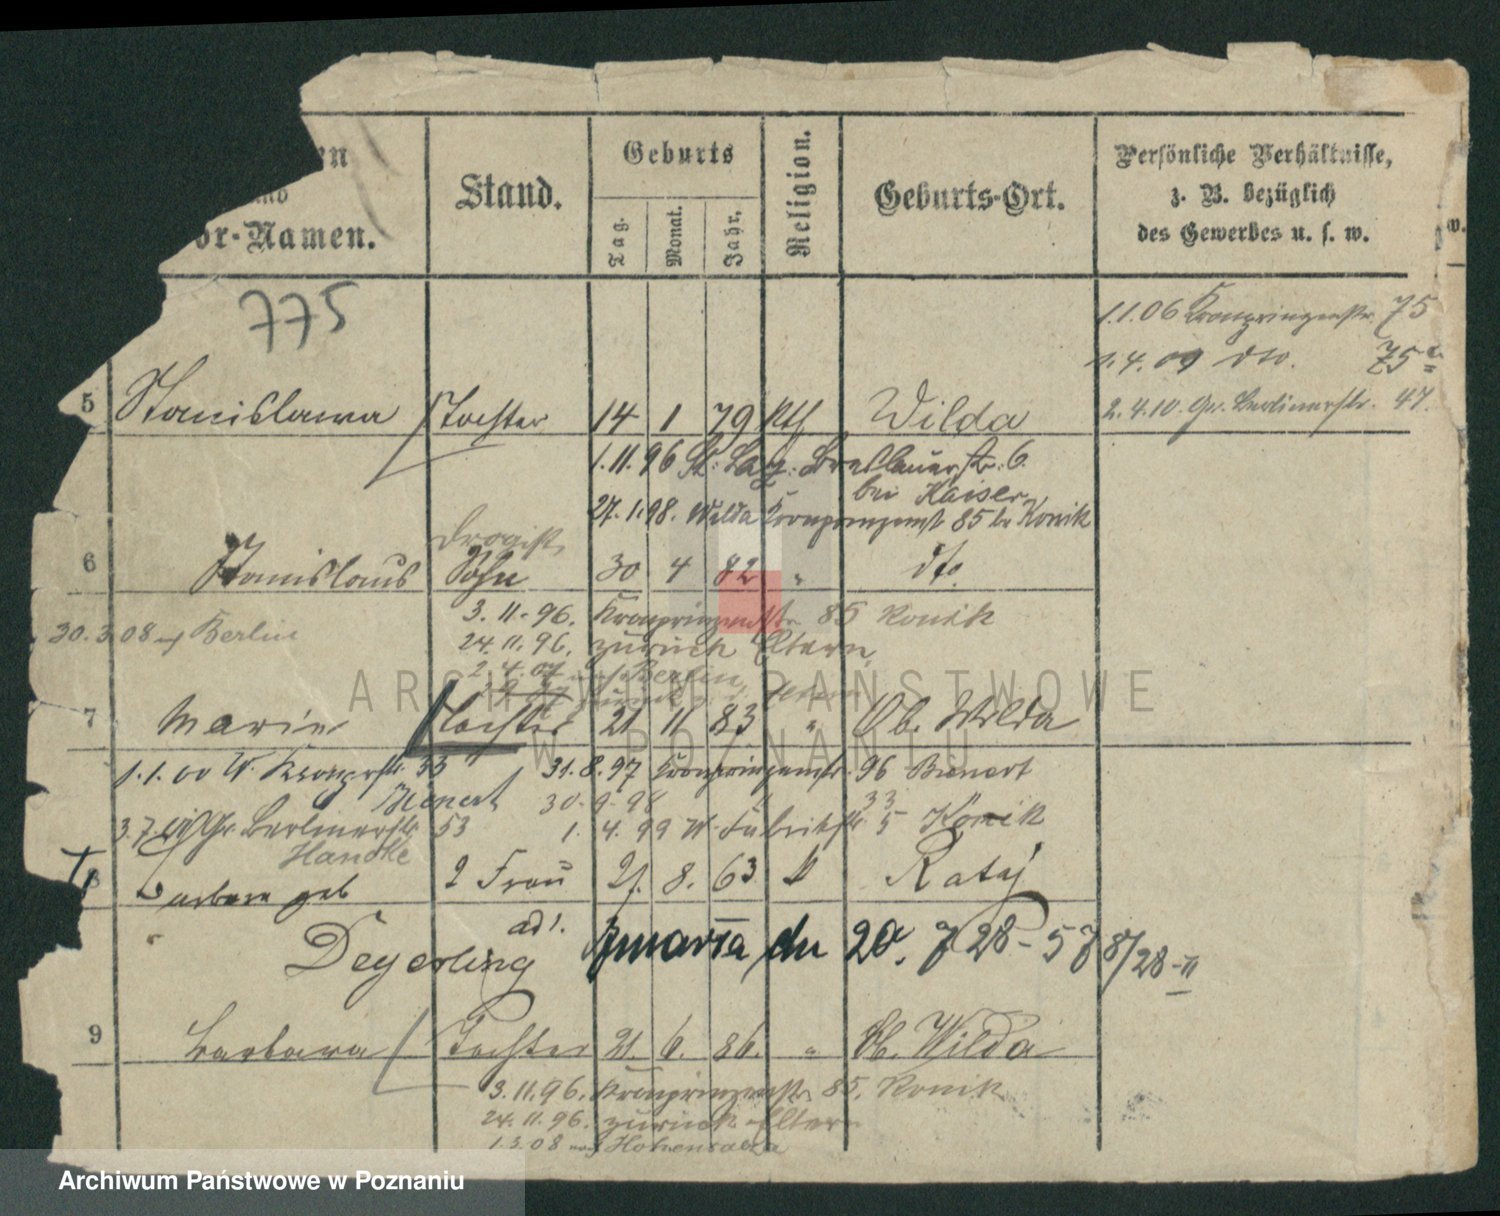 en
und
or-Namen.
Stand.
Geburts
Tag.
Monat.
Jahr.
Religion.
Geburts-Ort.
Persönliche Verhältnisse,
z. B. bezüglich
des Gewerbes u. s. w.
w.
775
1.1.06 Kronprinzenstr. 75
1.4.09 dto. 75a
5 Stanislawa Tochter 14 1 79 Kth Wilda
2.4.10. Gr. Berlinerstr. 47.
1.11.96 St. Laz. Breslauerstr. 6.
bei Kaiser
27.1.98. Wilda Kronprinzenst 85 b. Konik
Drogist
6 Stanislaus Sohn 30 4 82 " dto.
3.11.96. Kronprinzenstr. 85 Konik
30.3.08 Berlin
24.11.96. zurück Eltern.
2.4.07 Berlin
7 Marie Tochter 21 11 83 " Ob. Wilda
1.1.00 W. Kronprstr. 33
31.8.97 Kronprinzenstr. 96 Bienert
Bienert 30.9.98 33
3.7. Gr. Berlinerstr. 53
1.4.99 W. Fabrikstr. 5 Konik
Hancke
8 Barbara geb 2 Frau 21. 8. 63 k Rataj
Degerling
ad 1. 20. 7 28 - 578/28-II
9 Barbara Tochter 21. 6. 86. " Ob. Wilda
3.11.96. Kronprinzenstr. 85. Konik
24.11.96. zurück Eltern
1.3.08 nach Hohensalza
ARCHIWUM PAŃSTWOWE
W POZNANIU
Archiwum Państwowe w Poznaniu